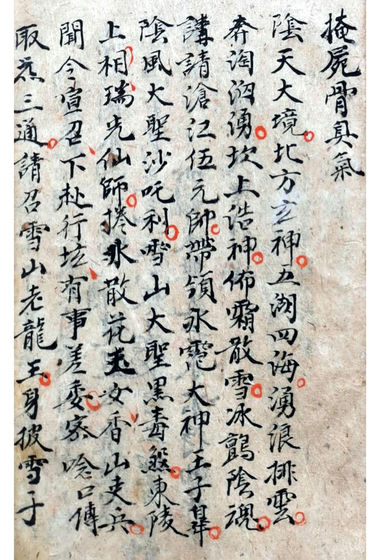 掩屍骨真氣
陰天大境北方玄神五湖四海湧浪排雲
湧坎上浩神佈霜散雪冰陰魂
請滄江伍元帥帶領氷雹大神王子
陰風大聖沙吒利雪山大聖黑毒東陵
上相瑞光仙師捲氷散花玉女香山吏兵
聞今宣召下赴行坛有事差委密唸口傳
取炁三通請召雪山老龍王身披雪子